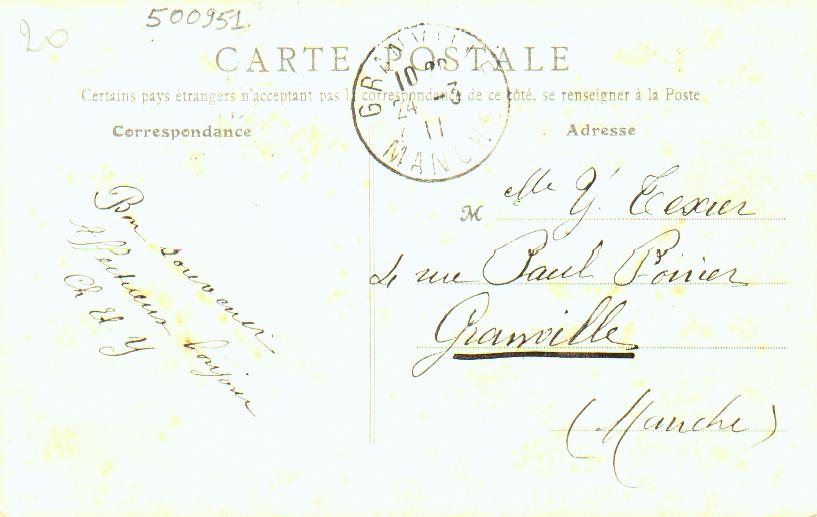 20
500951
CARTE POSTALE
Certains pays étrangers n'acceptant pas la correspondance de ce côté, se renseigner à la Poste
GRANVILLE
10
24 -3
11
MANCHE
Correspondance
Adresse
Bon souvenir
Affectueux bonjour
Ch et Y
M elle Y. Texier
4 rue Paul Poirier
Granville
(Manche)